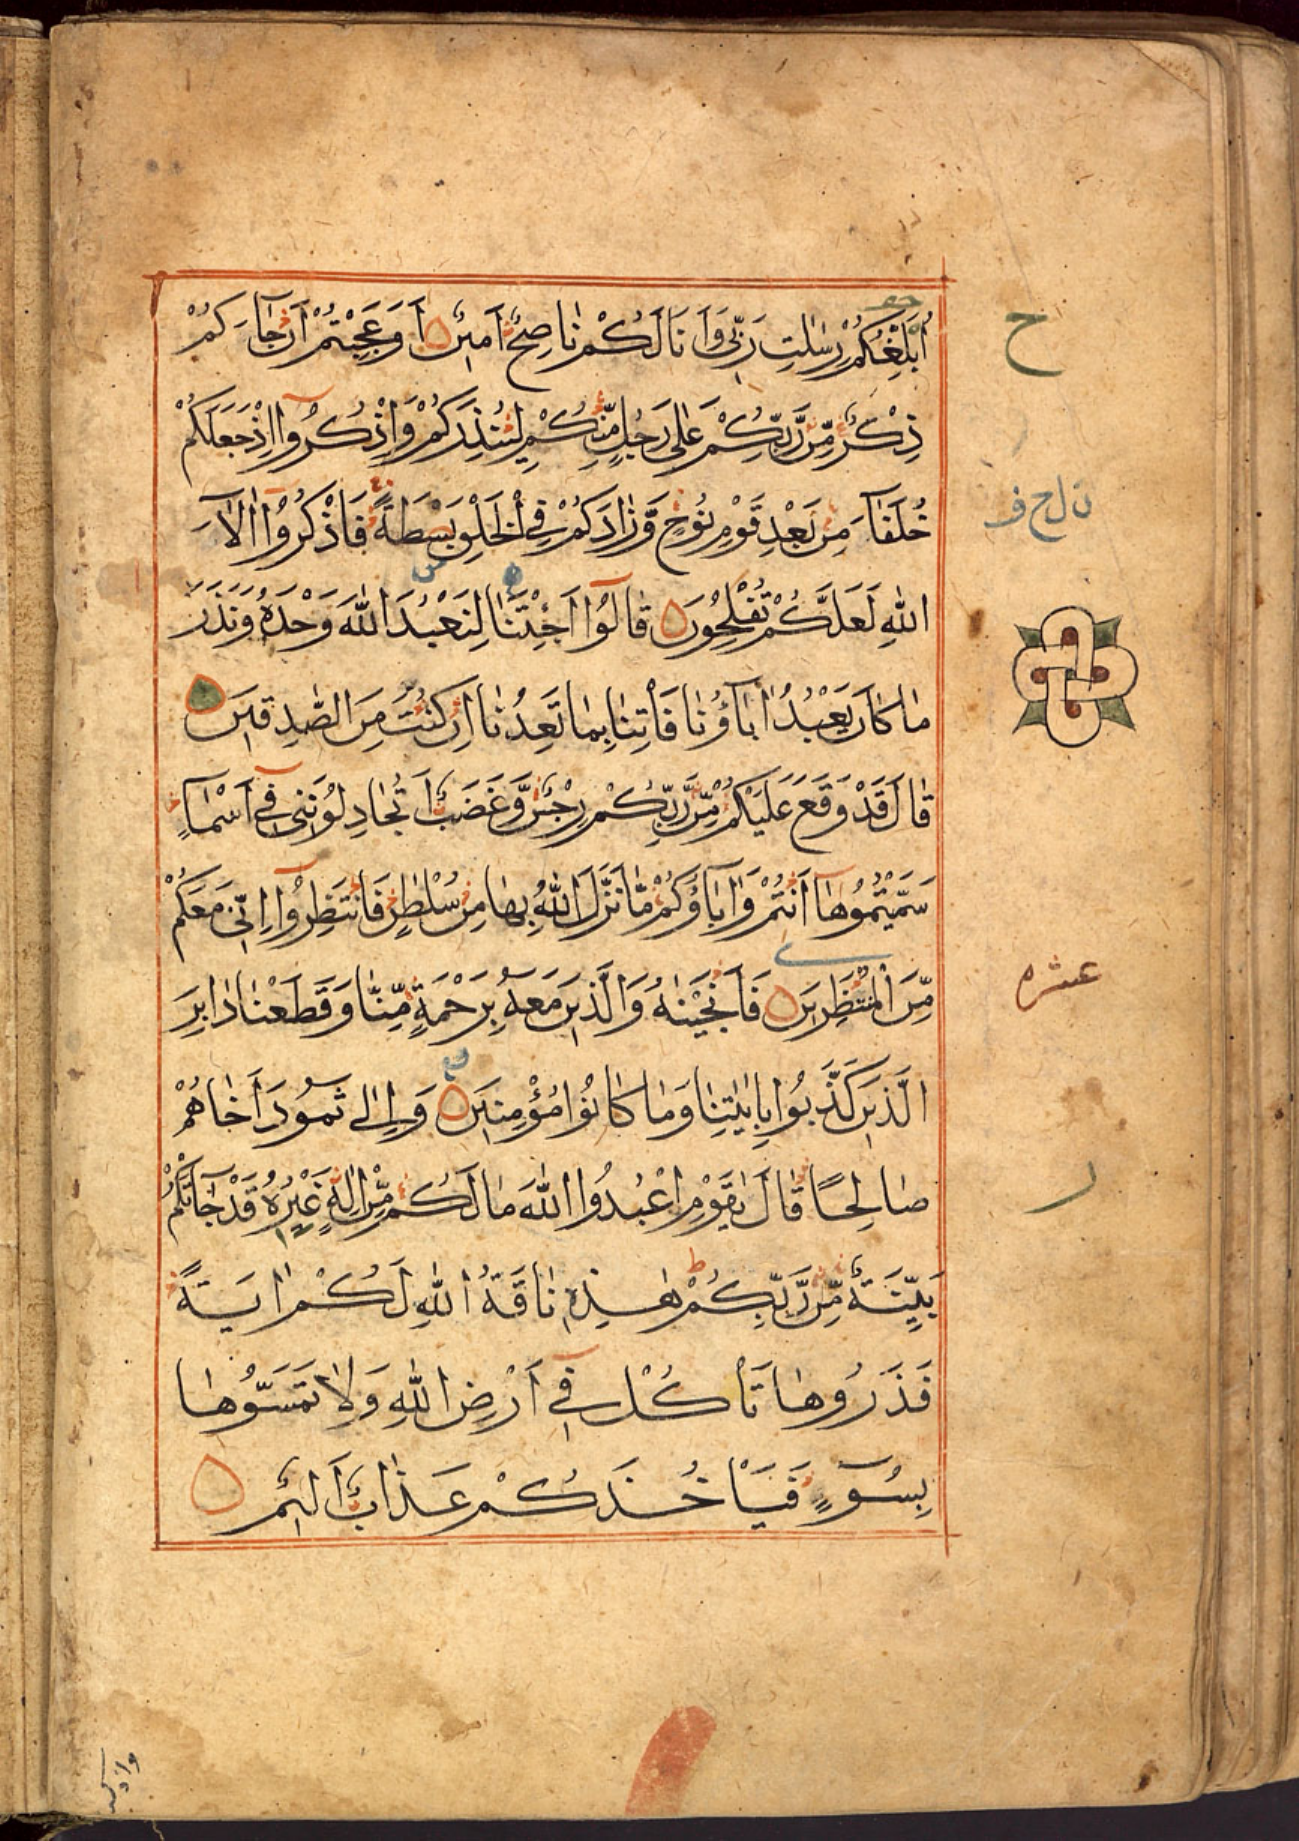 اُبَلِّغُكُمْ رِسٰلٰتِ رَبِّىْ وَاَنَا لَكُمْ نَاصِحٌ اَمِيْنٌ اَوَعَجِبْتُمْ اَنْ جَآءَكُمْ
ح
ذِكْرٌ مِّنْ رَّبِّكُمْ عَلٰى رَجُلٍ مِّنْكُمْ لِيُنْذِرَكُمْ وَاذْكُرُوْٓا اِذْ جَعَلَكُمْ
خُلَفَآءَ مِنْ بَعْدِ قَوْمِ نُوْحٍ وَّزَادَكُمْ فِى الْخَلْقِ بَصْۜطَةً فَاذْكُرُوْٓا اٰلَآءَ
اللّٰهِ لَعَلَّكُمْ تُفْلِحُوْنَ قَالُوْٓا اَجِئْتَنَا لِنَعْبُدَ اللّٰهَ وَحْدَهٗ وَنَذَرَ
مَا كَانَ يَعْبُدُ اٰبَآؤُنَا فَاْتِنَا بِمَا تَعِدُنَٓا اِنْ كُنْتَ مِنَ الصّٰدِقِيْنَ
قَالَ قَدْ وَقَعَ عَلَيْكُمْ مِّنْ رَّبِّكُمْ رِجْسٌ وَّغَضَبٌ اَتُجَادِلُوْنَنِىْ فِىْٓ اَسْمَآءٍ
سَمَّيْتُمُوْهَآ اَنْتُمْ وَاٰبَآؤُكُمْ مَّا نَزَّلَ اللّٰهُ بِهَا مِنْ سُلْطٰنٍ فَانْتَظِرُوْٓا اِنِّىْ مَعَكُمْ
مِّنَ الْمُنْتَظِرِيْنَ فَاَنْجَيْنٰهُ وَالَّذِيْنَ مَعَهٗ بِرَحْمَةٍ مِّنَّا وَقَطَعْنَا دَابِرَ
عشره
الَّذِيْنَ كَذَّبُوْا بِاٰيٰتِنَا وَمَا كَانُوْا مُؤْمِنِيْنَ وَاِلٰى ثَمُوْدَ اَخَاهُمْ
صَالِحًا قَالَ يٰقَوْمِ اعْبُدُوا اللّٰهَ مَا لَكُمْ مِّنْ اِلٰهٍ غَيْرُهٗ قَدْ جَآءَتْكُمْ
بَيِّنَةٌ مِّنْ رَّبِّكُمْ هٰذِهٖ نَاقَةُ اللّٰهِ لَكُمْ اٰيَةً
فَذَرُوْهَا تَاْكُلْ فِىْٓ اَرْضِ اللّٰهِ وَلَا تَمَسُّوْهَا
بِسُوْٓءٍ فَيَاْخُذَكُمْ عَذَابٌ اَلِيْمٌ
واذكر